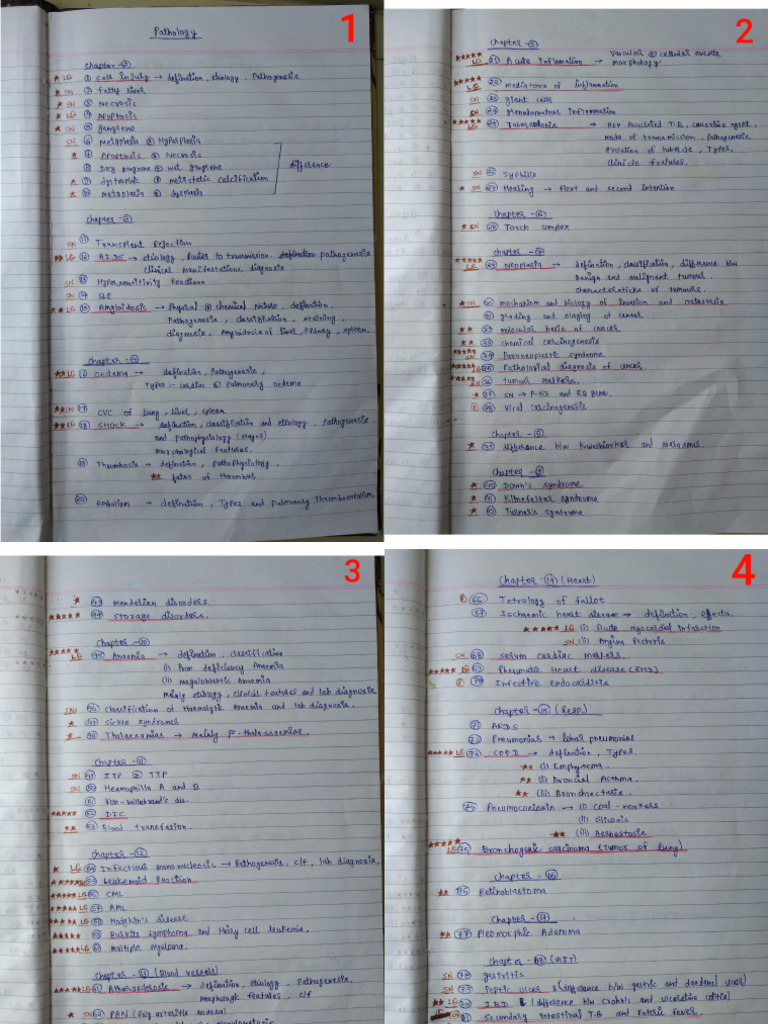 1
Pathology
Chapter -②
★ LG ① Cell injury → defination, etiology, Pathogenesis
★ SN ② Fatty liver
★ SN ③ Necrosis
★ LG ④ Apoptosis
★ SN ⑤ gangrene
SN ⑥ Metaplasia & Hyperplasia
★ ⑦ Apoptosis & Necrosis
⑧ Dry gangrene & wet gangrene
★ ⑨ dystrophic & metastatic calcification
★ ⑩ metaplasia & dysplasia
difference
SN ⑪ Transplant Rejection
★★ LG ⑫ AIDS → etiology, Routes to transmission, pathogenesis
clinical manifestations, diagnosis
SN ⑬ Hypersensitivity Reactions
SN ⑭ SLE
★ LG ⑮ Amyloidosis → Physical & chemical Nature, defination,
Pathogenesis, classification, staining,
diagnosis. Amyloidosis of liver, kidney, spleen
★★ LG Oedema → defination, Pathogenesis,
Types :- cardiac & Pulmonary oedema
★★ SN ⑰ CVC of lung, liver, spleen
★★ LG ⑱ SHOCK → defination, classification and etiology, Pathogenesis
and Pathophysiology (stages)
morphological features.
⑲ Thrombosis → defination, Pathophysiology,
★★ fates of thrombus
⑳ Embolism → defination, Types and pulmonary Thromboembolism.
2
★★★★★ LG ㉑ Acute Inflamation → Vascular & cellular events,
morphology
★★★★★ LG mediators of inflamation
SN giant cells
SN granulomatous inflamation
★★★★★ LG Tuberculosis → HIV Associated T.B, causative agent,
mode of transmission, Pathogenesis
evolution of tubercle, Types,
clinicle features.
SN Syphilis
★ SN Healing → first and second intention
★ SN Torch complex
★★★★★ LG Neoplasia → defination, classification, difference b/w
Benign and malignant tumour.
characteristicks of tumours.
mechanism and biology of invasion and metastasis
grading and staging of cancer
★★ molecular basis of cancer
★★ chemical carcinogenesis
Paraneoplastic syndrome
Pathological diagnosis of cancer
Tumour markers.
★ SN → P-53 and RB gene.
Viral carcinogenesis
★ difference b/w Kwashiorker and Marasmus.
★ Down's syndrome
★ Klinefelter syndrome
★ Turner's syndrome
3
★ Mendelian disorders.
★★★★★ Storage disorders.
Chapter -⑩
★★★★ LG Anaemia → defination, classification
(i) Iron deficiency Anaemia
(ii) megaloblastic Anaemia
Mainly etiology, clinical features and lab diagnosis
SN Classification of Haemolytic Anaemia and lab diagnosis.
★ Sickle syndromes
★ Thalassemias → mainly β-thalassaemias.
Chapter -⑪
SN ITP & TTP
SN Haemophilia A and B
Von-willebrand's dis.
★★★★★ DIC
★★ Blood transfusion.
Chapter -⑫
★ LG Infectious mononucleosis → Pathogenesis, c/f, lab diagnosis,
Leukemoid Reaction
★★★★★ LG CML
★★★★★ LG AML
★★★★ LG Hodgkin's disease
★★★★★ Burkits lymphoma and Hairy cell leukemia.
★★★★★ LG Multiple myeloma.
Chapter -⑬ (Blood vessels)
★★★★ LG Atherosclerosis → defination, etiology, Pathogenesis,
morphology features, c/f
★ SN PAN (Poly arteritis nodosa)
4
Chapter -⑭ (Heart)
Tetrology of fallot
Ischaemic heart disease → defination, effects.
★★★★★ LG (i) Acute myocardial infarction
SN (ii) Angina Pectoris
SN Serum cardiac markers
★★★★★ LG Rheumatic Heart disease (RHD)
Infective endocarditis
Chapter -⑮ (Resp.)
ARDS
Pneumonias → lobar pneumonias
★★★★★ LG COPD → defination, Types.
★★ (i) Emphysema.
★★ (ii) Broncial Asthma.
★★ (iii) Bronchiectasis.
Pneumoconiosis → (i) Coal-workers
(ii) silicosis
★★ (iii) Asbestosis
★★★★★ LG Bronchogenic carcinoma (Tumor of lung)
Chapter -⑯
★★ Retinoblastoma
Chapter -⑰
★★ Pleomorphic Adenoma
Chapter -⑱ (GIT)
SN Gastritis
SN Peptic ulcers & (difference b/w gastric and duodenal ulcers)
LG IBD & (difference b/w crohn's and ulcerative colitis)
Secondary Intestinal T.B and enteric fever.